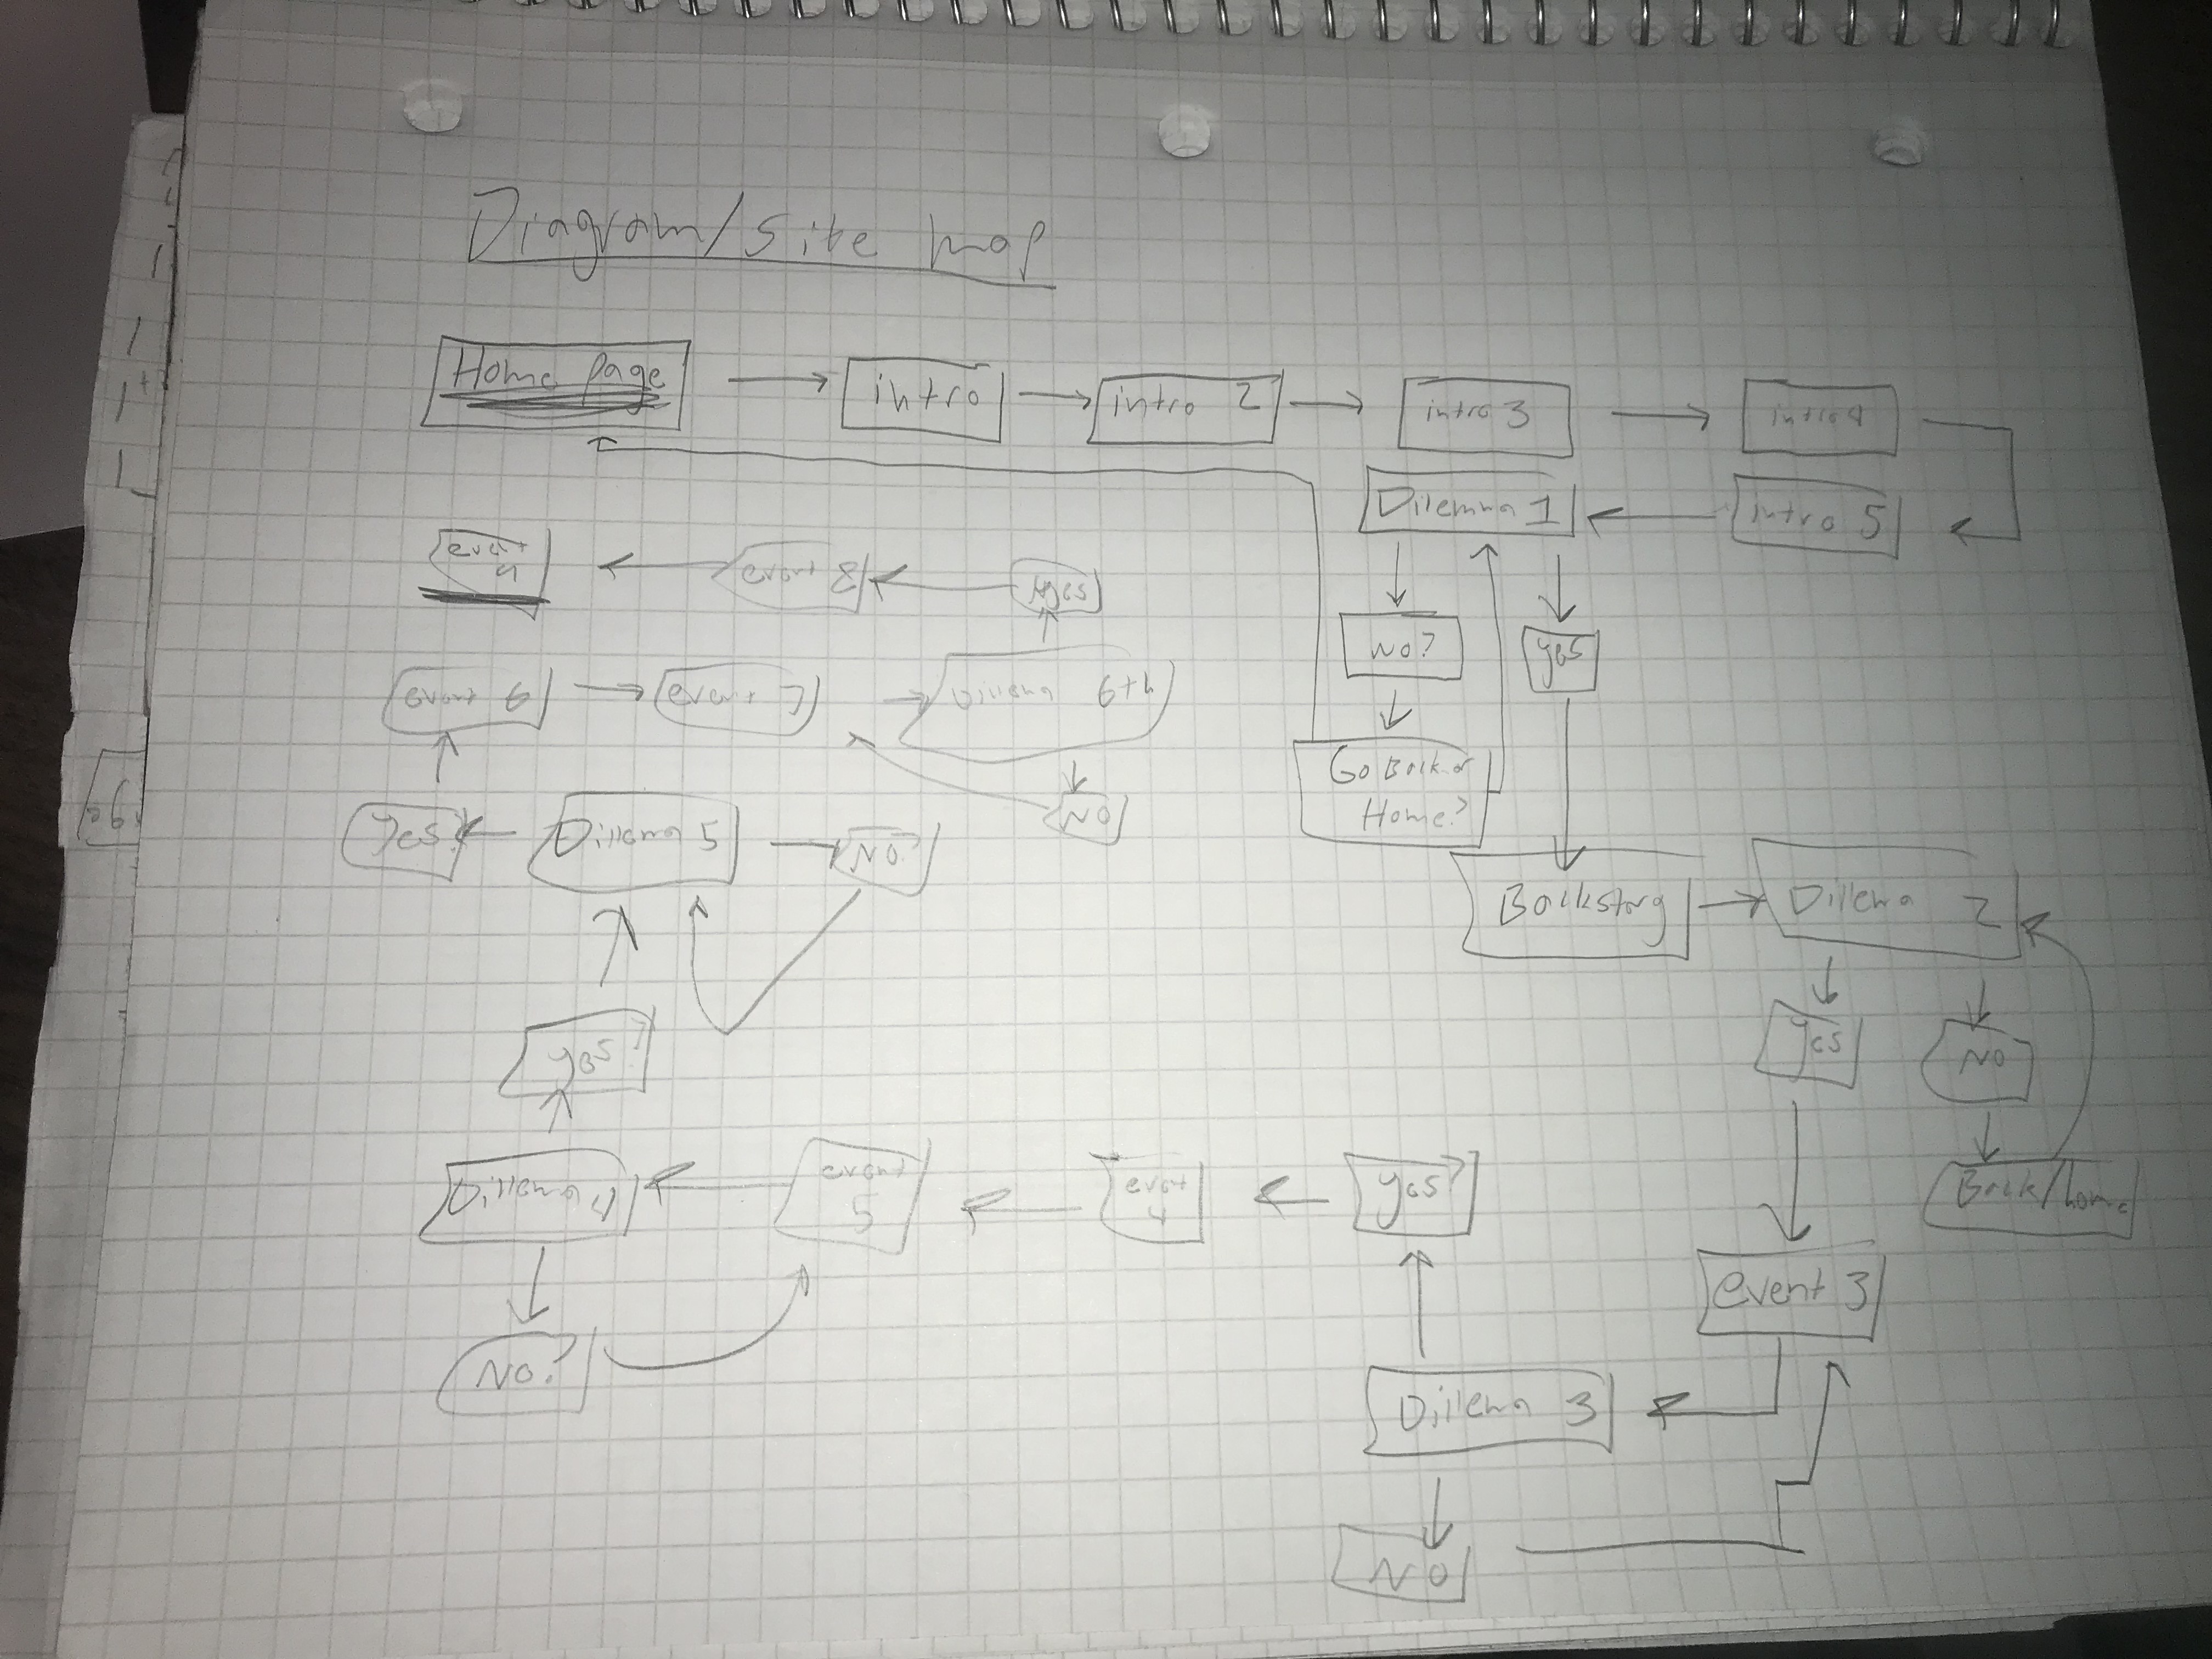 Diagram/Site Map
Home Page
intro
intro 2
intro 3
intro 4
intro 5
Dilemma 1
No?
Go Back or
Home?
Yes
Backstory
Dillema 2
Yes
No
Back/home
Event 3
Dillema 3
No
Yes?
event
4
event
5
Dillema 4
No?
Yes?
Dillema 5
No?
Yes?
event 6
event 7
Dillema 6th
No
Yes
event 8
event
9